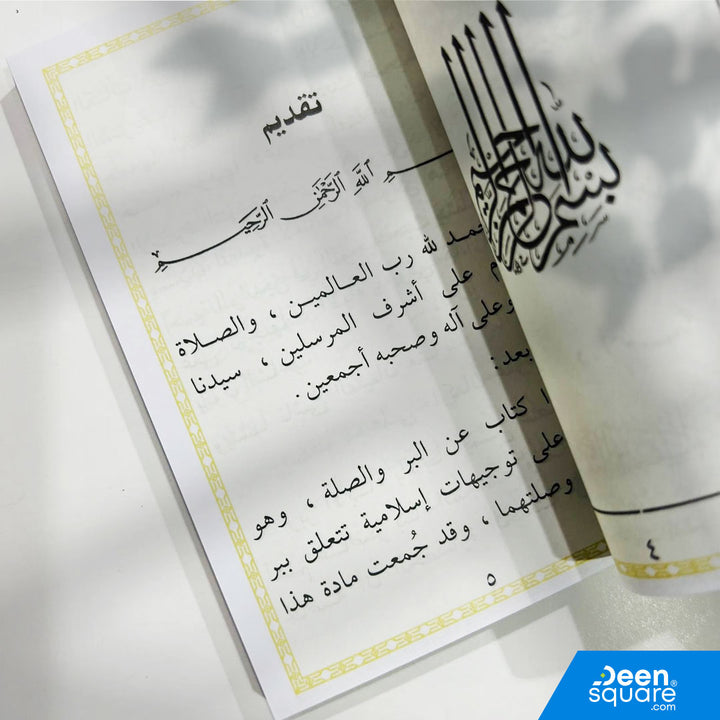 تقديم
ـم الله الرحمن الرحيم
حمد لله رب العالمين ، والصلاة
م على أشرف المرسلين ، سيدنا
وعلى آله وصحبه أجمعين .
بعد :
ا كتاب عن البر والصلة ، وهو
على توجيهات إسلامية تتعلق ببر
وصلتهما ، وقد جُمعت مادة هذا
٥
بسم الله الرحمن الرحيم
٤
Deen
square®
.com